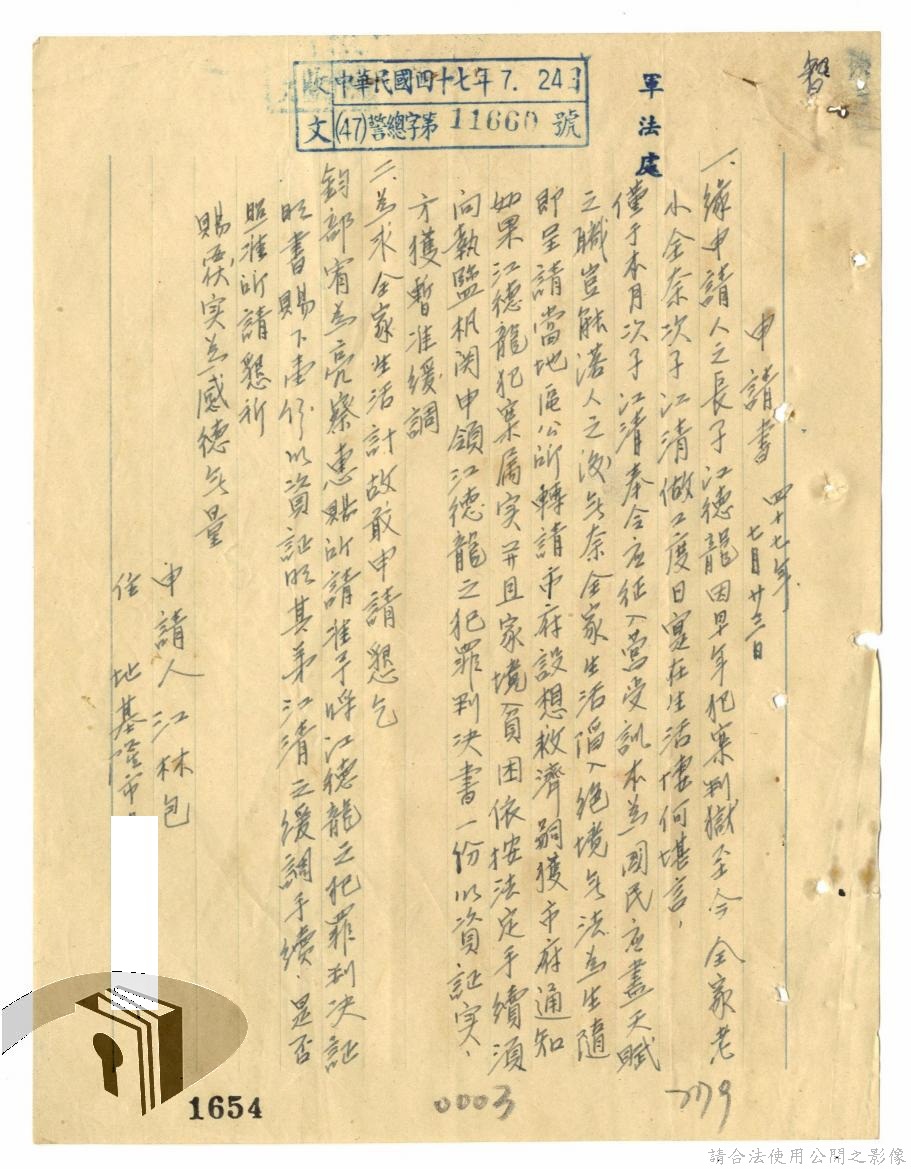 智
軍法處
收文 中華民國四十七年7.24日
(47)警總字第11660號
申請書 四十七年七月廿三日
一、緣申請人之長子江德龍因早年犯案判獄至今全家老
小全奈次子江清做工度日寔在生活悽何堪言，
僅于本月次子江清奉令应征入營受訓本為國民应盡天賦
之職豈能落人之後無奈全家生活陷入絕境無法為生隨
即呈請當地區公所轉請市府設想救濟嗣獲市府通知
如果江德龍犯案屬实并且家境貧困依按法定手續須
向執監机関申領江德龍之犯罪判决書一份以資証实，
方獲暫准緩調
二、為求全家生活計故敢申請懇乞
鈞部宥為亮察惠賜所請准予將江德龍之犯罪判决証
明書賜下壹份以資証明其弟江清之緩調手續，是否
照准所請懇祈
賜覆实為感德無量
申請人 江林包
住 地基隆市
1654
0003
779
請合法使用公開之影像